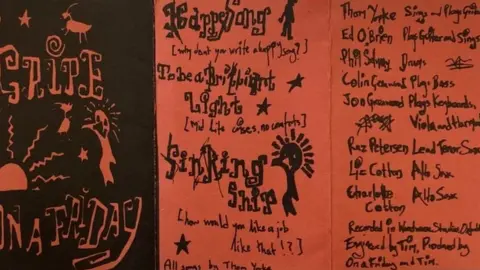 GRIPE
ON A FRIDAY
Happy Song
[Why dont you write a happy song?]
To be a Brilliant
Light
[Mid Life crises, no comforts]
Sinking
Ship
[how would you like a job
like that!?]
All songs by Thom Yorke
Thom Yorke Sings and Plays Guitar
Ed O'Brien Plays Guitar and Sings
Phil Selway Drums
Colin Greenwood Plays Bass
Jon Greenwood Plays Keyboards,
Viola and
Raz Petersen Lead Tenor Sax
Liz Cotton Alto Sax
Charlotte Cotton Alto Sax
Recorded in Woodworm Studios
Engineered by Tim, Produced by
On a Friday and Tim.